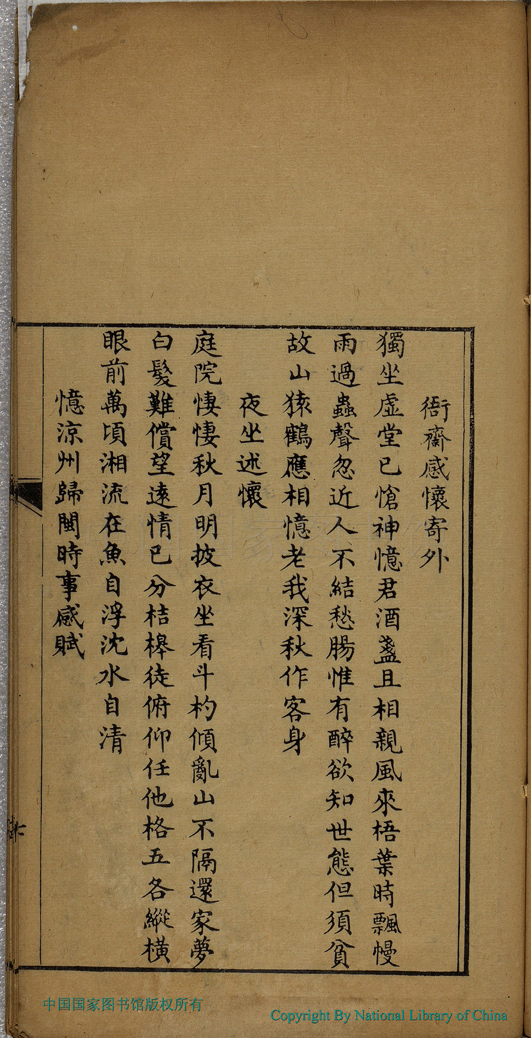 衙齋感懷寄外
獨坐虛堂已愴神憶君酒盞且相親風來梧葉時飄慢
雨過蟲聲忽近人不結愁腸惟有醉欲知世態但須貧
故山猿鶴應相憶老我深秋作客身
夜坐述懷
庭院悽悽秋月明披衣坐看斗杓傾亂山不隔還家夢
白髮難償望遠情已分桔槹徒俯仰任他格五各縱橫
眼前萬頃湘流在魚自浮沈水自清
憶涼州歸閩時事感賦
中国国家图书馆版权所有
Copyright By National Library of China